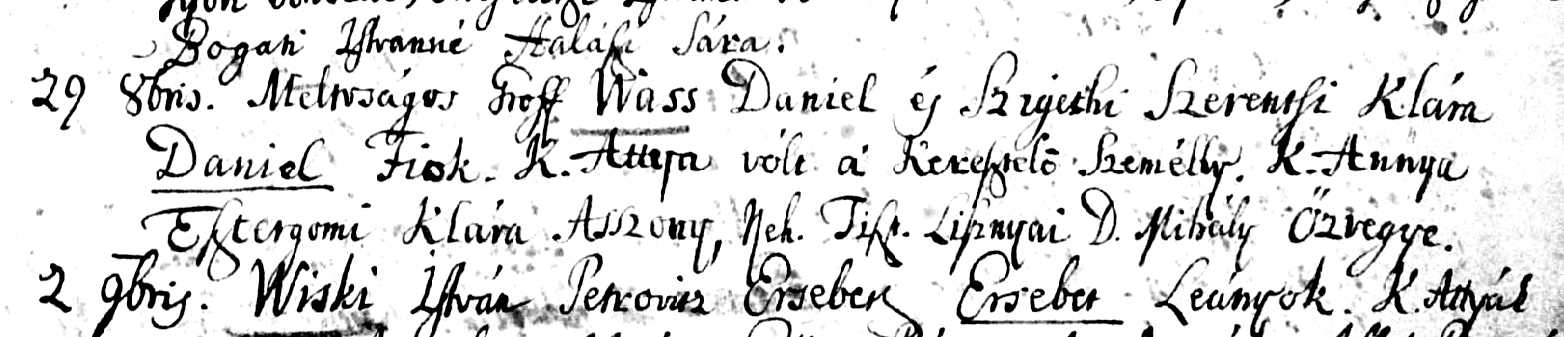 Bogati Istvanné Halási Sára.
29 8bris. Meltoságos Groff Wass Daniel és Szigethi Szerentsi Klára
Daniel Fiok. K. Attya vólt a' Keresztelő Személly. K. Annya
Esztergomi Klára Asszony, Neh. Tiszt. Lisznyai D. Mihály Özvegye.
2 9bris. Wiski István Petrovitz Ersebet Ersebet Leányok. K. Attyák